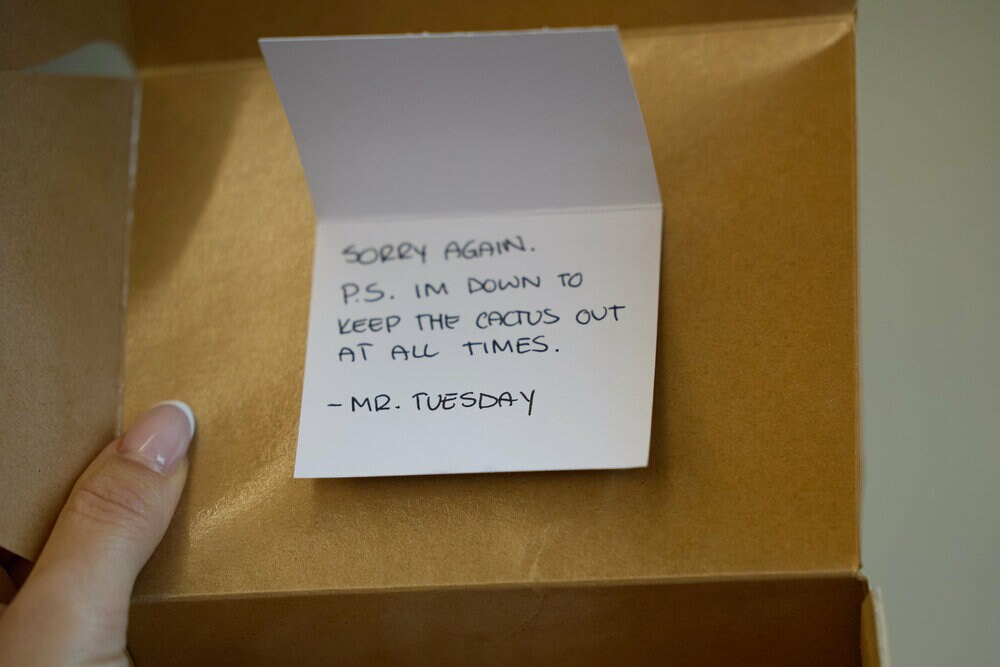 SORRY AGAIN.
P.S. IM DOWN TO
KEEP THE CACTUS OUT
AT ALL TIMES.
- MR. TUESDAY